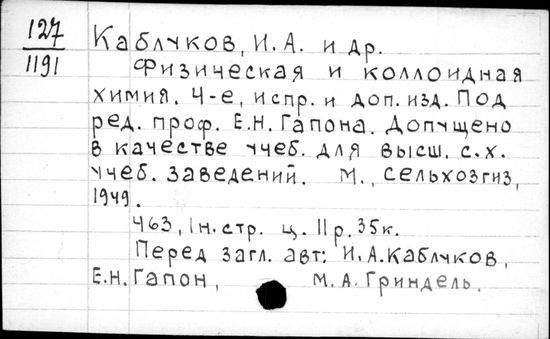 127
1191
Каблуков, И. А. и др.
Физическая и коллоидная
химия. 4-е, испр. и доп. изд. Под
ред. проф. Е.Н. Гапона. Допущено
в качестве учеб. для высш. с.х.
учеб. заведений. М., Сельхозгиз,
1949.
463, 1 н. стр. ц. 11 р. 35 к.
Перед загл. авт: И.А. Каблуков,
Е.Н. Гапон, М. А. Гриндель.